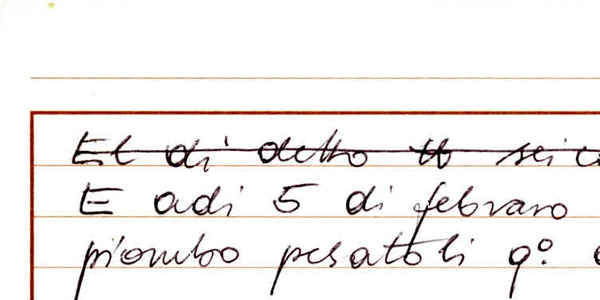 El di detto tt sei
E adi 5 di febraro
piombo pesatoli qº